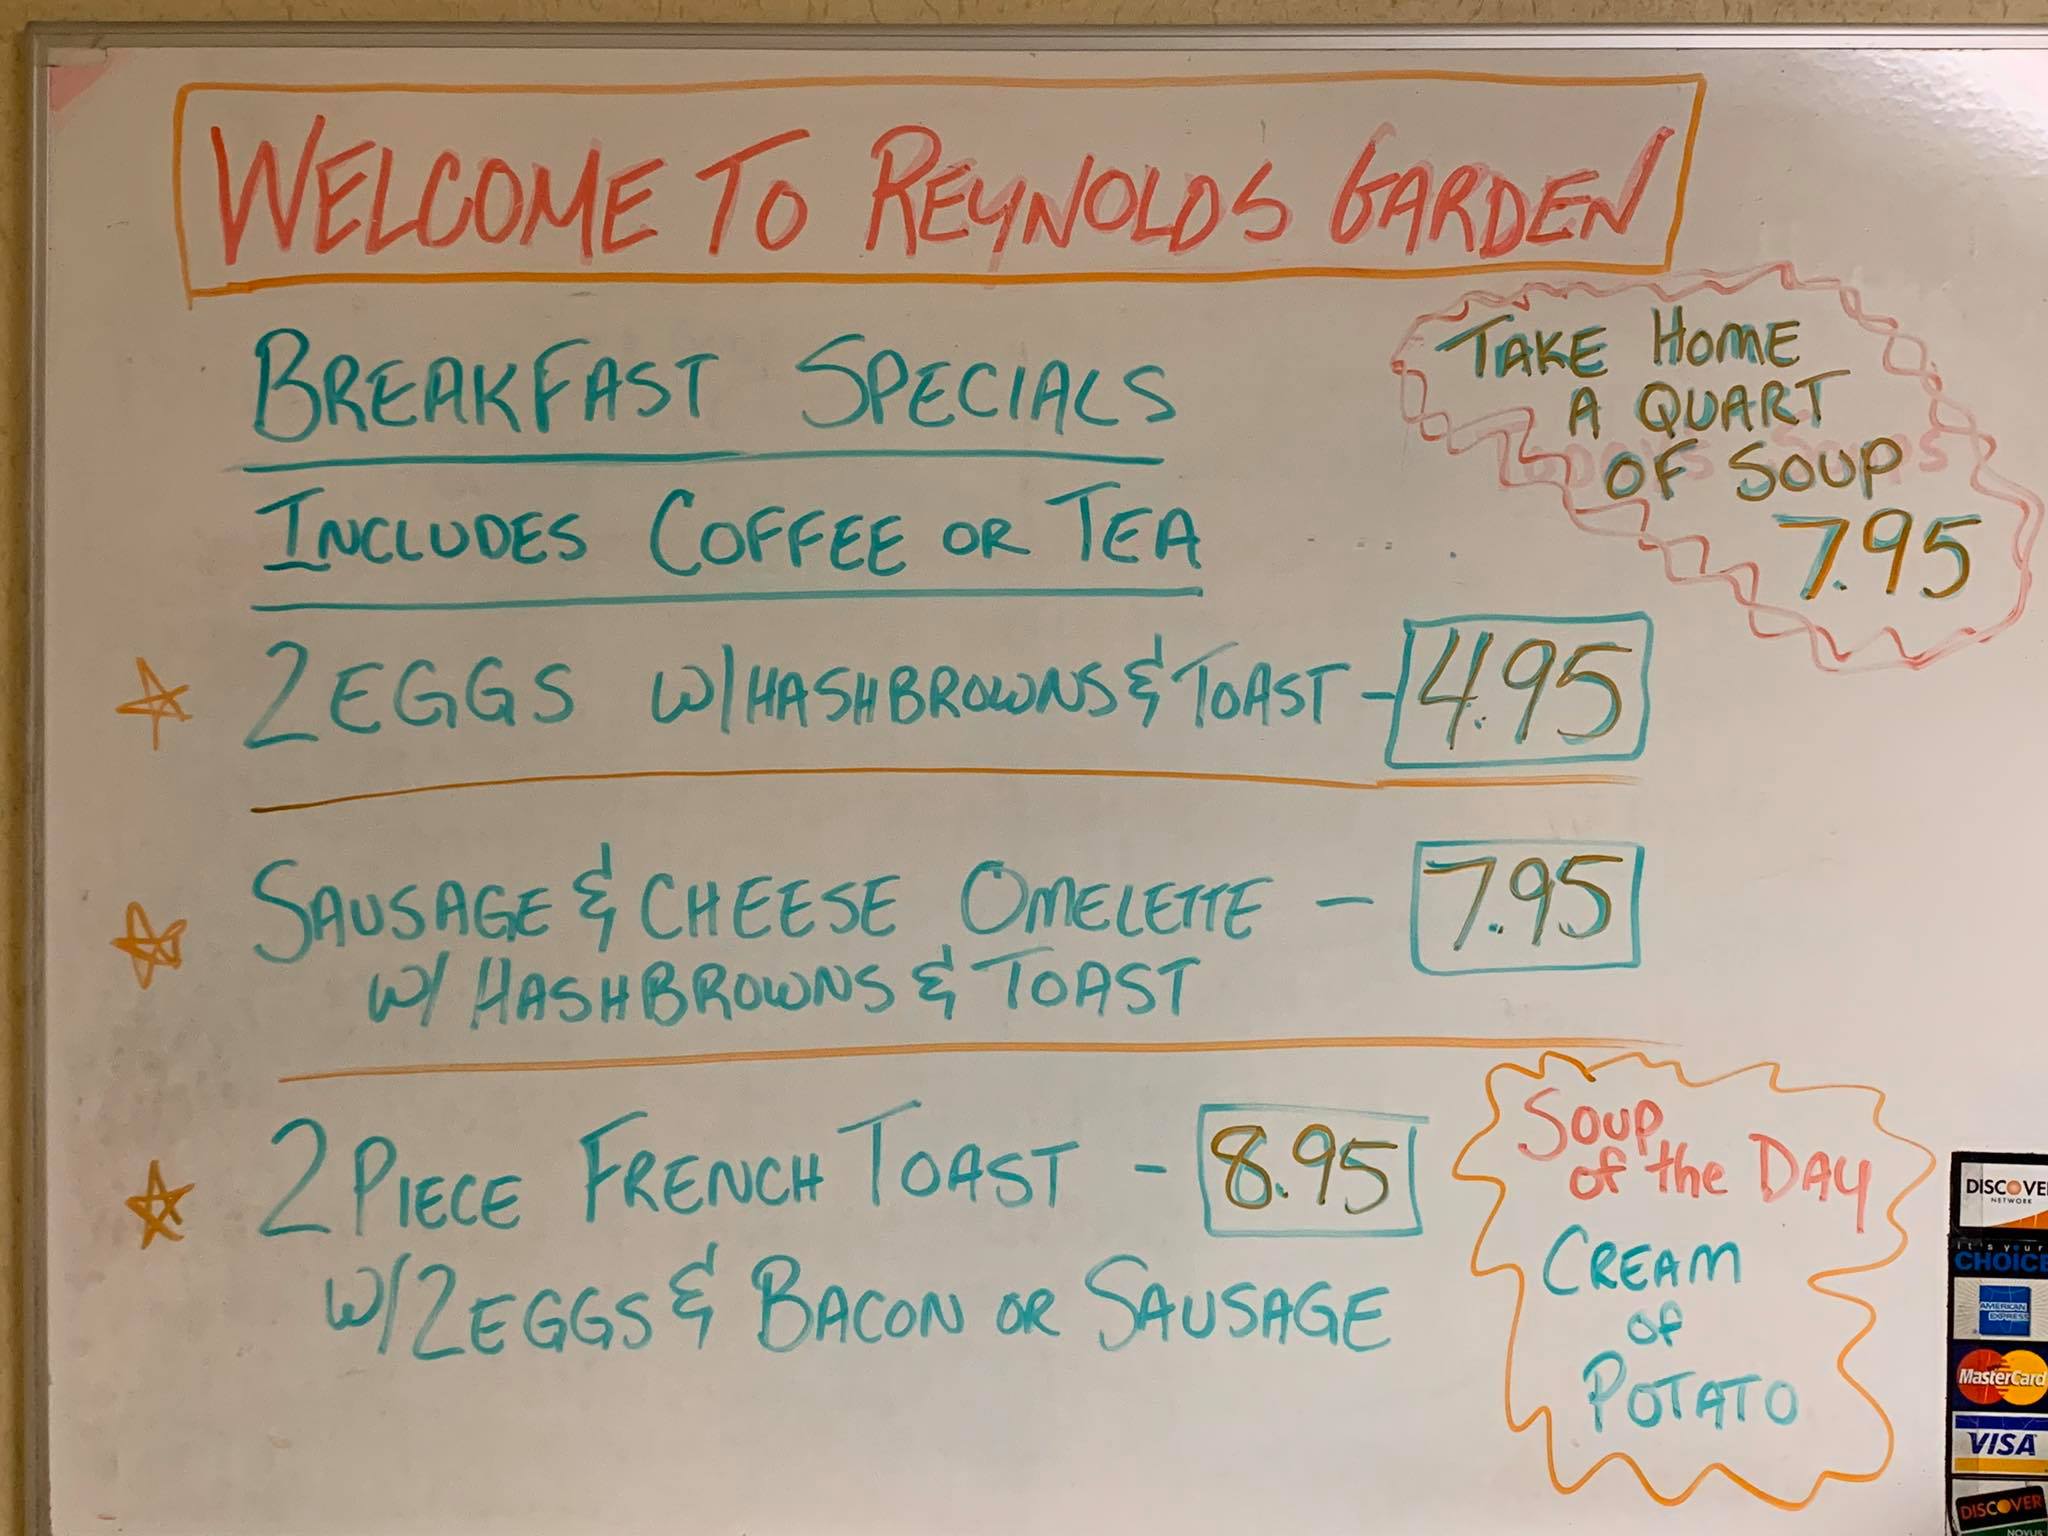 WELCOME TO REYNOLDS GARDEN
BREAKFAST SPECIALS
INCLUDES COFFEE OR TEA
TAKE HOME
A QUART
OF SOUP
7.95
2 EGGS W/HASHBROWNS & TOAST - 4.95
SAUSAGE & CHEESE OMELETTE - 7.95
W/ HASHBROWNS & TOAST
2 PIECE FRENCH TOAST - 8.95
W/2 EGGS & BACON OR SAUSAGE
SOUP
of the DAY
CREAM
OF
POTATO
DISCOVE
NETWORK
it's your
CHOICE
AMERICAN
EXPRESS
MasterCard
VISA
DISCOVER
NOVUS